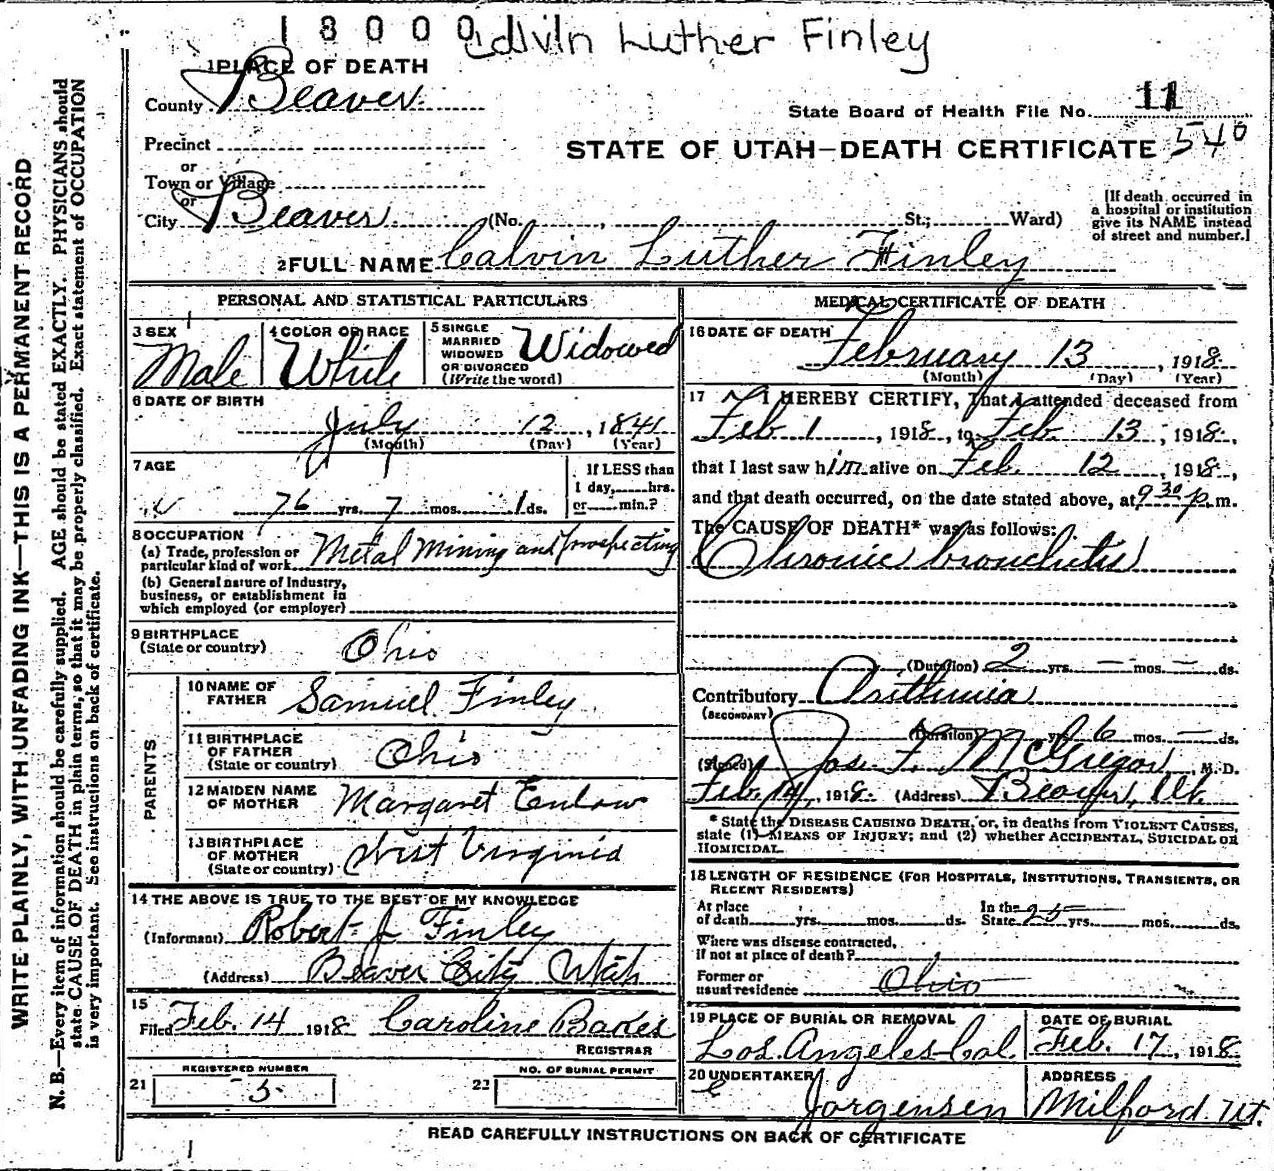 1 8 0 0 0
Calvin Luther Finley
1 PLACE OF DEATH
County Beaver
State Board of Health File No. 11
Precinct
or
STATE OF UTAH—DEATH CERTIFICATE 540
Town or Village
or
City Beaver (No. , St.; Ward)
[If death occurred in
a hospital or institution
give its NAME instead
of street and number.]
2 FULL NAME Calvin Luther Finley
PERSONAL AND STATISTICAL PARTICULARS
3 SEX
Male
4 COLOR OR RACE
White
5 SINGLE
MARRIED
WIDOWED
OR DIVORCED
(Write the word)
Widowed
6 DATE OF BIRTH
July 12, 1841
(Month) (Day) (Year)
7 AGE
76 yrs. 7 mos. 1 ds.
If LESS than
1 day, hrs.
or min.?
8 OCCUPATION
(a) Trade, profession or
particular kind of work Metal Mining and prospecting
(b) General nature of Industry,
business, or establishment in
which employed (or employer)
9 BIRTHPLACE
(State or country) Ohio
PARENTS
10 NAME OF
FATHER Samuel Finley
11 BIRTHPLACE
OF FATHER
(State or country) Ohio
12 MAIDEN NAME
OF MOTHER Margaret Enlow
13 BIRTHPLACE
OF MOTHER
(State or country) West Virginia
14 THE ABOVE IS TRUE TO THE BEST OF MY KNOWLEDGE
(Informant) Robert J Finley
(Address) Beaver City Utah
15
Filed Feb. 14 1918 Caroline Bakes
REGISTRAR
21 REGISTERED NUMBER
3
22 NO. OF BURIAL PERMIT
MEDICAL CERTIFICATE OF DEATH
16 DATE OF DEATH
February 13, 1918
(Month) (Day) (Year)
17 I HEREBY CERTIFY, That I attended deceased from
Feb 1, 1918, to Feb. 13, 1918,
that I last saw him alive on Feb. 12, 1918,
and that death occurred, on the date stated above, at 9 30 p.m.
The CAUSE OF DEATH* was as follows:
Chronic bronchitis
(Duration) 2 yrs. — mos. — ds.
Contributory
(SECONDARY)
(Duration) yrs. 6 mos. — ds.
(Signed) Jos. F. McGregor M. D.
Feb. 14, 1918 (Address) Beaver, Ut.
* State the DISEASE CAUSING DEATH, or, in deaths from VIOLENT CAUSES,
state (1) MEANS OF INJURY; and (2) whether ACCIDENTAL, SUICIDAL OR
HOMICIDAL.
18 LENGTH OF RESIDENCE (FOR HOSPITALS, INSTITUTIONS, TRANSIENTS, OR
RECENT RESIDENTS)
At place
of death yrs. mos. ds.
In the
State 25 yrs. mos. ds.
Where was disease contracted,
if not at place of death?
Former or
usual residence Ohio
19 PLACE OF BURIAL OR REMOVAL
Los Angeles Cal.
DATE OF BURIAL
Feb. 17, 1918
20 UNDERTAKER
Jorgensen
ADDRESS
Milford. Ut.
READ CAREFULLY INSTRUCTIONS ON BACK OF CERTIFICATE
WRITE PLAINLY, WITH UNFADING INK—THIS IS A PERMANENT RECORD
N. B.—Every item of information should be carefully supplied. AGE should be stated EXACTLY. PHYSICIANS should
state CAUSE OF DEATH in plain terms, so that it may be properly classified. Exact statement of OCCUPATION
is very important. See instructions on back of certificate.